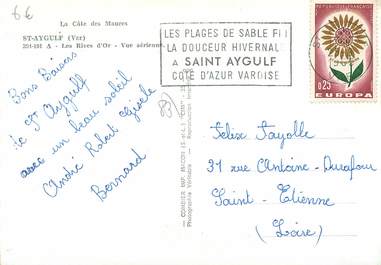 6€
La Côte des Maures
ST-AYGULF (Var)
Les Rives d'Or - Vue aérienne
LES PLAGES DE SABLE FIN
LA DOUCEUR HIVERNALE
A SAINT AYGULF
COTE D'AZUR VAROISE
0,25
EUROPA
Bons Baisers
de St Aygulf
avec un beau soleil
André Robert Gisèle
Bernard
Felix Fayolle
31 rue Antoine-Durafour
Saint-Etienne
(Loire)
Photographie Véritable